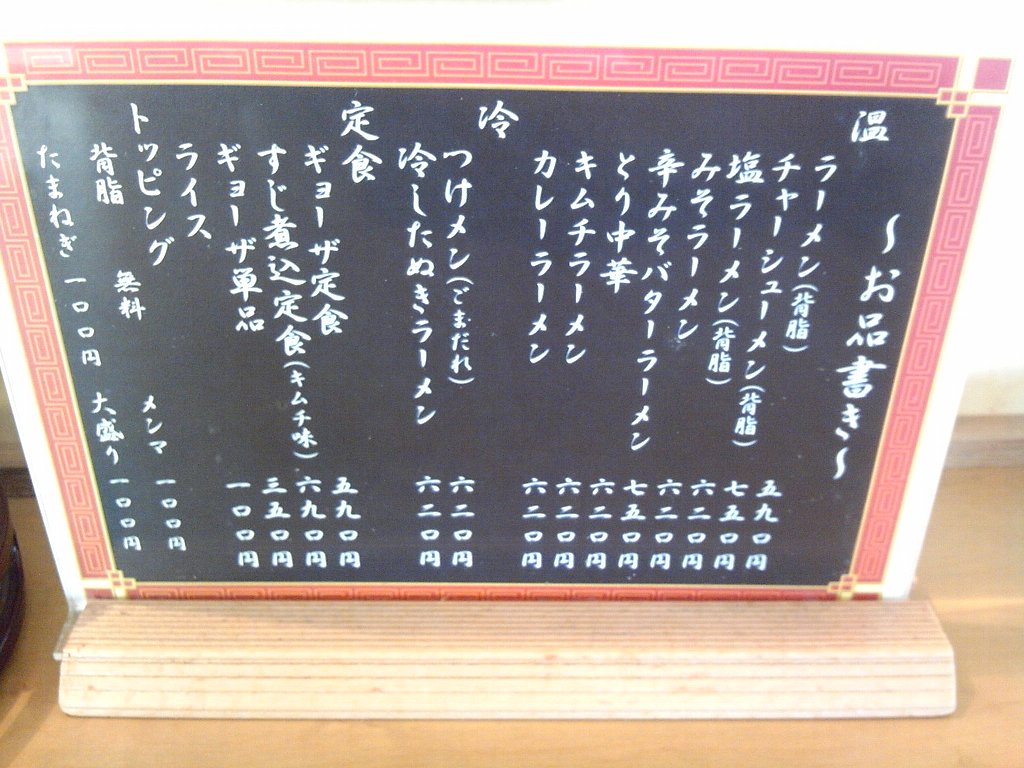 〜お品書き〜
温
ラーメン(背脂) 五九〇円
チャーシューメン(背脂) 七五〇円
塩ラーメン(背脂) 六二〇円
みそラーメン 六二〇円
辛みそバターラーメン 七五〇円
とり中華 六二〇円
キムチラーメン 六二〇円
カレーラーメン 六二〇円
冷
つけメン(ごまだれ) 六二〇円
冷したぬきラーメン 六二〇円
定食
ギョーザ定食 五九〇円
すじ煮込定食(キムチ味) 六九〇円
ギョーザ単品 三五〇円
ライス 一〇〇円
トッピング
背脂 無料 メンマ 一〇〇円
たまねぎ 一〇〇円 大盛り 一〇〇円